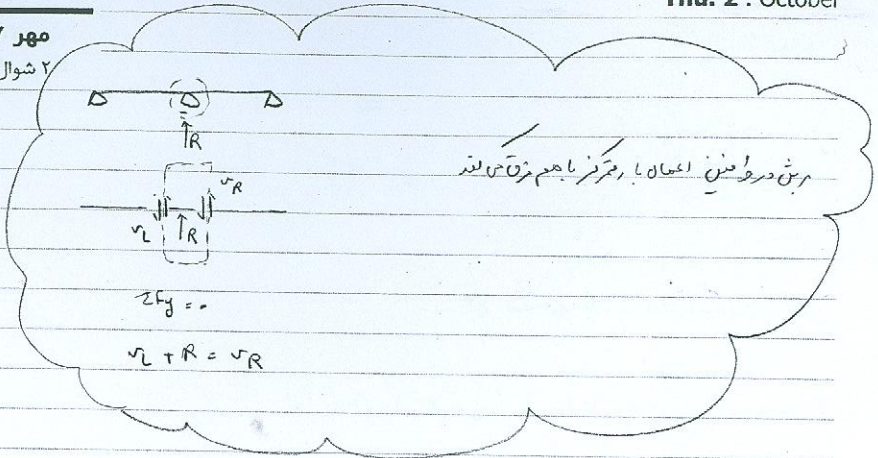 Thu. 2 . October
مهر ۷
۲ شوال
R
برش در طرفین اعمال بار متمرکز با هم فرق می کند
V_R
V_L R
ΣFy = 0
V_L + R = V_R